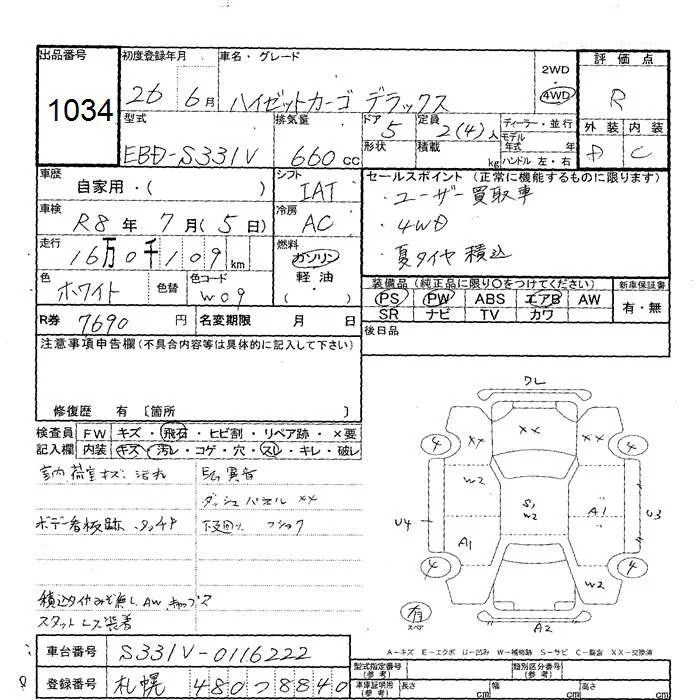 出品番号
1034
初度登録年月
26 6月
車名・グレード
ハイゼットカーゴ デラックス
2WD
4WD
評価点
R
外装 内装
D C
型式
EBD-S331V
排気量
660 cc
ドア
5
形状
定員
2(4)人
積載
kg
ディーラー・並行
モデル
年式 年
ハンドル 左・右
車歴
自家用・( )
シフト
IAT
車検
R8年 7月(5日)
冷房
AC
走行
16万0千109km
燃料
ガソリン
軽油
( )
色
ホワイト
色替
色コード
W09
セールスポイント (正常に機能するものに限ります)
・ユーザー買取車
・4WD
・夏タイヤ積込
装備品 (純正品に限り○をつけてください)
新車保証書
PS PW ABS エアB AW
SR ナビ TV カワ
有・無
R券 7690円
名変期限 月 日
後日品
注意事項申告欄(不具合内容等は具体的に記入して下さい)
修復歴 有 [箇所 ]
検査員
記入欄
FW キズ・飛石・ヒビ割・リペア跡・×要
内装 キズ・汚レ・コゲ・穴・スレ・キレ・破レ
室内荷室キズ、汚れ
異音
ダッシュパネル XX
ボデー看板跡
下廻り
積込タイヤみぞ無し、AWキャップX
スタットレス装着
ワレ
XX
XX
XX
4
4
W2
S1
W2
A1
U4
U3
A1
W2
4
4
有
スペア
A2
A-キズ E-エクボ U-凹み W-補修跡 S-サビ C-腐食 X-要交換 XX-交換済
車台番号
S331V-0116222
登録番号
札幌 480つ8840
型式指定番号
(参考)
類別区分番号
(参考)
車庫証明用
(参考)
長さ cm
幅 cm
高さ cm